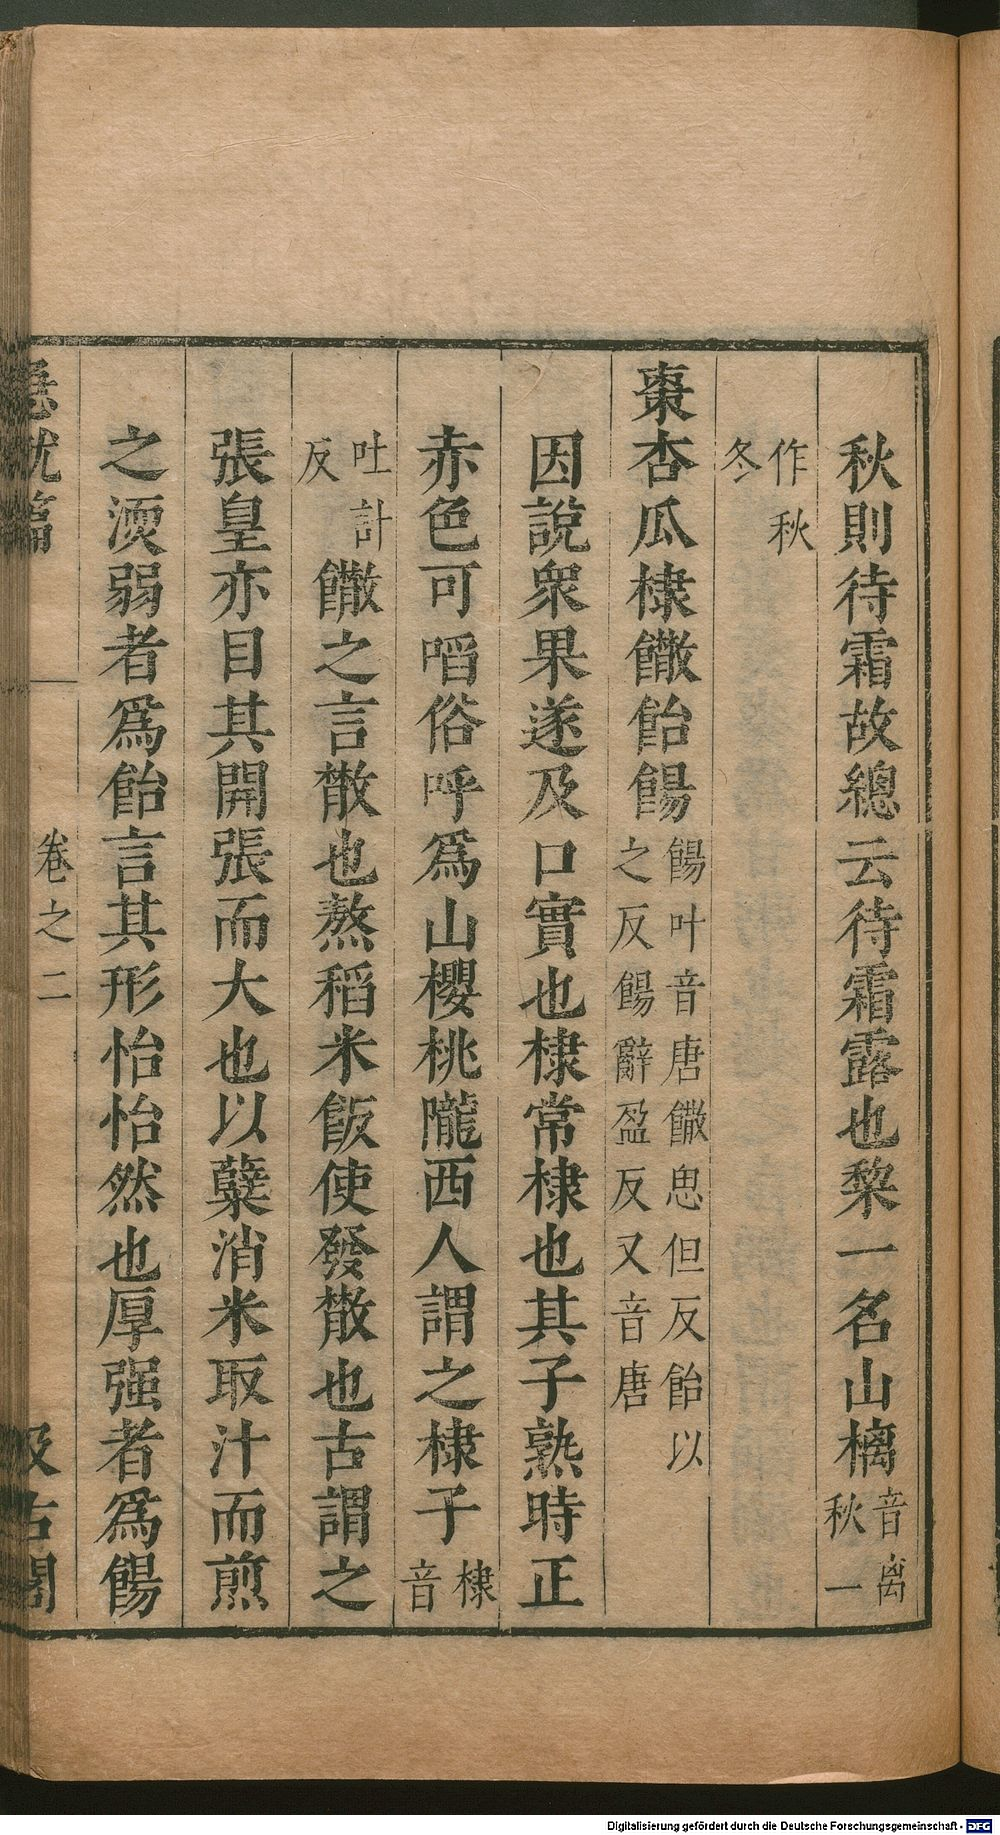 秋則待霜故總云待霜露也棃一名山樆音离秋一
作秋冬
棗杏瓜棣饊飴餳餳叶音唐饊思但反飴以之反餳辭盈反又音唐
因說衆果遂及口實也棣常棣也其子熟時正
赤色可啗俗呼爲山櫻桃隴西人謂之棣子棣音
吐計反饊之言散也熬稻米飯使發散也古謂之
張皇亦目其開張而大也以糵消米取汁而煎
之渜弱者爲飴言其形怡怡然也厚强者爲餳
急就篇 卷之二 汲古閣
Digitalisierung gefördert durch die Deutsche Forschungsgemeinschaft - DFG